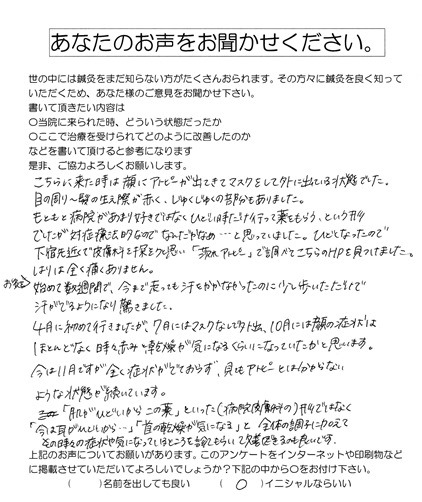 あなたのお声をお聞かせください。
世の中には鍼灸をまだ知らない方がたくさんおられます。その方々に鍼灸を良く知って
いただくため、あなた様のご意見をお聞かせ下さい。
書いて頂きたい内容は
〇当院に来られた時、どういう状態だったか
〇ここで治療を受けられてどのように改善したのか
などを書いて頂けると参考になります
是非、ご協力よろしくお願いします。
こちらに来た時は顔にアトピーが出てきてマスクをして外に出ている状態でした。
目の周り〜髪の生え際が赤く、じゅくじゅくの部分もありました。
もともと病院があまり好きではなくひどい時だけ行って薬をもらう、という形
でしたが対症療法的なのでなんだかなぁ…と思っていました。ひどくなったので
下宿先近くで皮膚科を探そうと思い「アトピー」で調べてこちらのHPを見つけました。
はりは全く痛くありません。
お灸を
始めて数週間で、今まで走っても汗をかかなかったのに少し歩いただけで
汗がでるようになり驚きました。
4月に初めて行きましたが、7月にはマスクなしで外出、10月には顔の症状は
ほとんどなく時々赤みや乾燥が気になるくらいになっていたかと思います。
今は11月ですが全く症状がでておらず、見てもアトピーとは分からない
ような状態が続いています。
「肌がひどいからこの薬」といった(病院皮膚科の)形ではなく
「今は耳がひどいから…」「首の乾燥が気になる」と全体の調子に加えて
その時々の症状や気になっているところを診てもらい
上記のお声についてお願いがあります。このアンケートをインターネットや印刷物など
に掲載させていただいてよろしいでしょうか?下記の中から〇をお付け下さい。
( )名前を出しても良い ( 〇 )イニシャルならいい